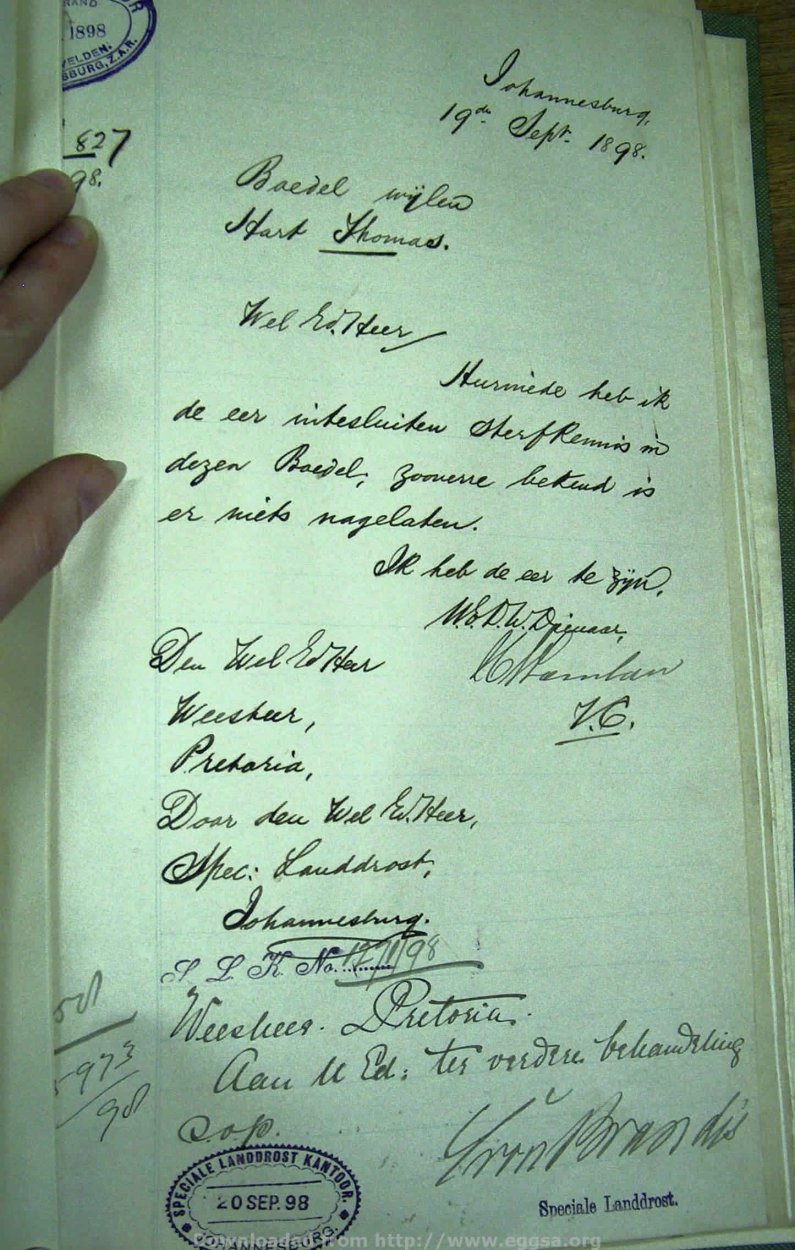 1898
VELDEN.
SBURG, Z.A.R.
827
98.
Johannesburg,
19de Sept. 1898.
Boedel wijlen
Hart Thomas.
Wel Ed. Heer
Hiermede heb ik
de eer intesluiten Sterfkennis in
dezen Boedel, zooverre bekend is
er niets nagelaten.
Ik heb de eer te zijn,
W.E.D.W. Dienaar,
V.C.
Den Wel Ed Heer
Weesheer,
Pretoria,
Door den Wel Ed. Heer,
Spec: Landdrost,
Johannesburg.
S. L. K. No.
Weesheer. Pretoria.
Aan U Ed: ter verdere behandeling
5973/98
c.o.p.
von Brandis
SPECIALE LANDDROST KANTOOR.
20 SEP. 98
JOHANNESBURG.
Speciale Landdrost.
Downloaded from http://www.eggsa.org